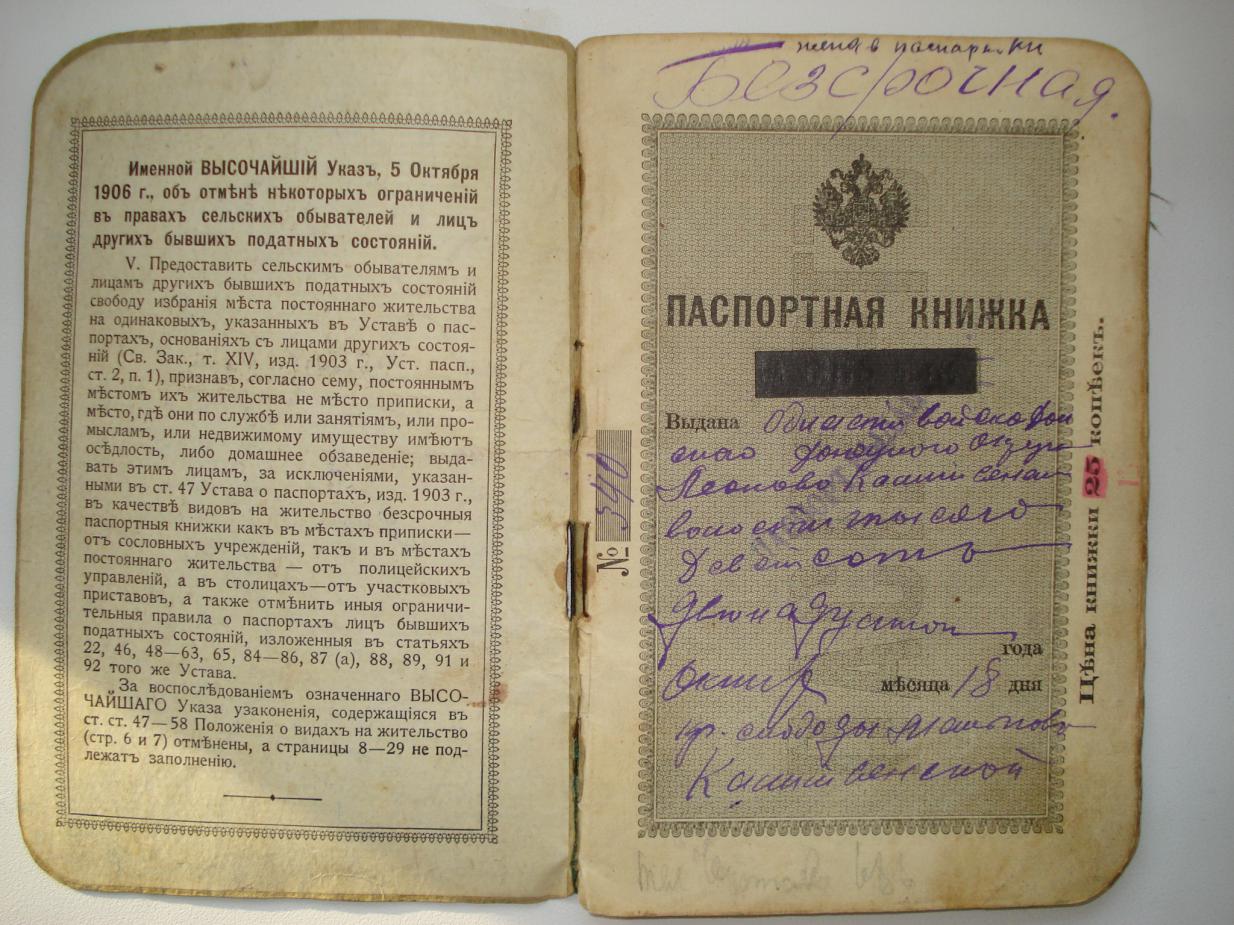 Именной ВЫСОЧАЙШІЙ Указъ, 5 Октября
1906 г., объ отмѣнѣ нѣкоторыхъ ограниченій
въ правахъ сельскихъ обывателей и лицъ
другихъ бывшихъ податныхъ состояній.
V. Предоставить сельскимъ обывателямъ и
лицамъ другихъ бывшихъ податныхъ состояній
свободу избранія мѣста постояннаго жительства
на одинаковыхъ, указанныхъ въ Уставѣ о пас-
портахъ, основаніяхъ съ лицами другихъ состоя-
ній (Св. Зак., т. XIV, изд. 1903 г., Уст. пасп.,
ст. 2, п. 1), признавъ, согласно сему, постояннымъ
мѣстомъ ихъ жительства не мѣсто приписки, а
мѣсто, гдѣ они по службѣ или занятіямъ, или про-
мысламъ, или недвижимому имуществу имѣютъ
осѣдлость, либо домашнее обзаведеніе; выда-
вать этимъ лицамъ, за исключеніями, указан-
ными въ ст. 47 Устава о паспортахъ, изд. 1903 г.,
въ качествѣ видовъ на жительство безсрочныя
паспортныя книжки какъ въ мѣстахъ приписки—
отъ сословныхъ учрежденій, такъ и въ мѣстахъ
постояннаго жительства — отъ полицейскихъ
управленій, а въ столицахъ—отъ участковыхъ
приставовъ, а также отмѣнить иныя ограничи-
тельныя правила о паспортахъ лицъ бывшихъ
податныхъ состояній, изложенныя въ статьяхъ
22, 46, 48—63, 65, 84—86, 87 (а), 88, 89, 91 и
92 того же Устава.
За воспослѣдованіемъ означеннаго ВЫСО-
ЧАЙШАГО Указа узаконенія, содержащіяся въ
ст. ст. 47—58 Положенія о видахъ на жительство
(стр. 6 и 7) отмѣнены, а страницы 8—29 не под-
лежатъ заполненію.
Безсрочная.
ПАСПОРТНАЯ КНИЖКА
Выдана Области войска Дон
скаго Донецкаго Округа
волости тысяча
Девятсотъ
Двѣнадцатой
года
Октяб мѣсяца 18 дня
кр. слободы
№ 540
Цѣна книжки 25 копѣекъ.